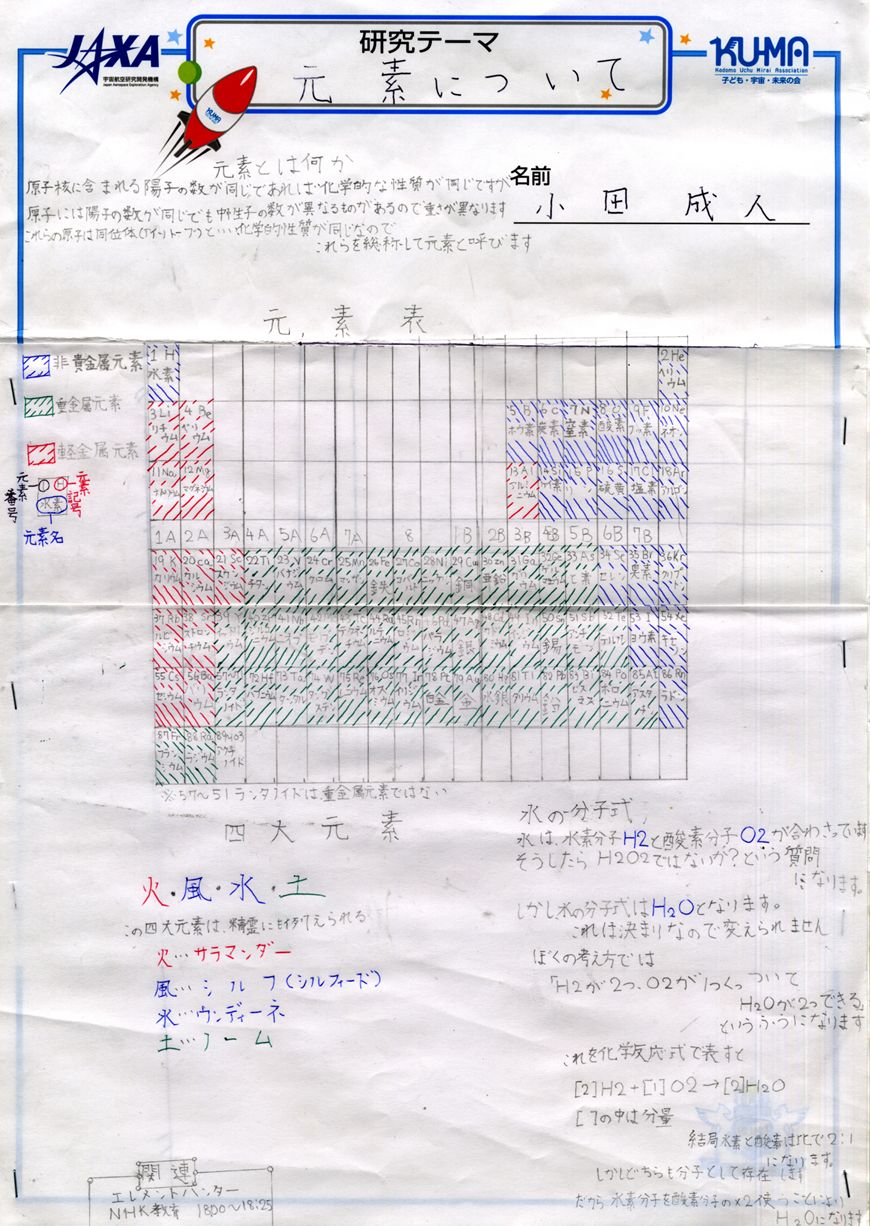 JAXA
宇宙航空研究開発機構
Japan Aerospace Exploration Agency
研究テーマ
元素について
KU-MA
Kodomo Uchu Mirai Association
子ども・宇宙・未来の会
KUMA
元素とは何か
名前
小田 成人
原子核に含まれる陽子の数が同じであれば化学的な性質が同じですが
原子には陽子の数が同じでも中性子の数が異なるものがあるので重さが異なります
これらの原子は同位体(アイソトープ)といい化学的性質が同じなので
これらを総称して元素と呼びます
元素表
非貴金属元素
重金属元素
軽金属元素
元素番号
元素記号
水素
元素名
1 H 水素
2 He ヘリウム
3 Li リチウム
4 Be ベリリウム
5 B ホウ素
6 C 炭素
7 N 窒素
8 O 酸素
9 F フッ素
10 Ne ネオン
11 Na ナトリウム
12 Mg マグネシウム
13 Al アルミニウム
14 Si ケイ素
15 P リン
16 S 硫黄
17 Cl 塩素
18 Ar アルゴン
1A 2A 3A 4A 5A 6A 7A 8 1B 2B 3B 4B 5B 6B 7B
19 K カリウム
20 ca カルシウム
21 Sc スカンジウム
22 Ti チタン
23 V バナジウム
24 Cr クロム
25 Mn マンガン
26 Fe 鉄
27 Co コバルト
28 Ni ニッケル
29 Cu 銅
30 zn 亜鉛
31 Ga ガリウム
33 As ヒ素
34 Se セレン
35 Br 臭素
36 Kr クリプトン
37 Rb ルビジウム
38 Sr ストロンチウム
47 Ag 銀
50 Sn 錫
52 Te テルル
53 I ヨウ素
54 Xe キセノン
55 Cs セシウム
56 Ba バリウム
73 Ta タンタル
74 W タングステン
78 Pt 白金
79 Au 金
80 Hg 水銀
81 Tl タリウム
82 Pb 鉛
83 Bi ビスマス
84 Po ポロニウム
85 At アスタチン
86 Rn ラドン
87 Fr フランシウム
88 Ra ラジウム
アクチノイド
※57〜51ランタノイドは重金属元素ではない
四大元素
火・風・水・土
この四大元素は、精霊に例えられる
火…サラマンダー
風…シルフ(シルフィード)
水…ウンディーネ
土…ノーム
水の分子式
水は、水素分子H2と酸素分子O2が合わさっています
そうしたらH2O2ではないか?という質問
になります。
しかし水の分子式はH2Oとなります。
これは決まりなので変えられません
ぼくの考え方では
「H2が2つ、O2が1つくっついて
H2Oが2つできる」
というふうになります
これを化学反応式で表すと
[2]H2+[1]O2→[2]H2O
[ ]の中は分量
結局水素と酸素は比で2:1
になります。
しかしどちらも分子として存在します
だから水素分子を酸素分子の×2使うことにより
H2Oになります
関連
エレメントハンター
NHK教育 1800〜18:25